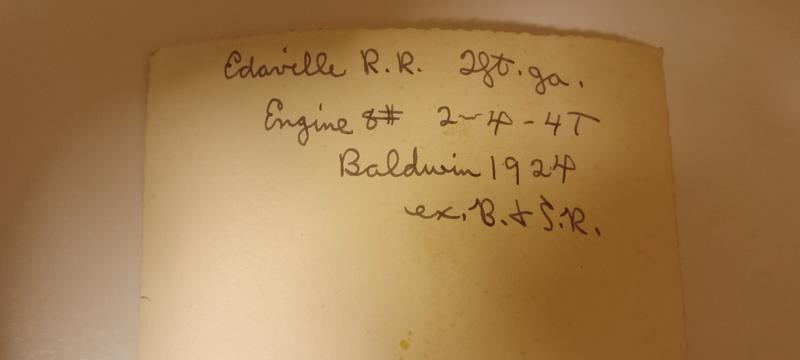 Edaville R.R. 2ft. ga.
Engine 8# 2-4-4T
Baldwin 1924
ex. B. & S.R.